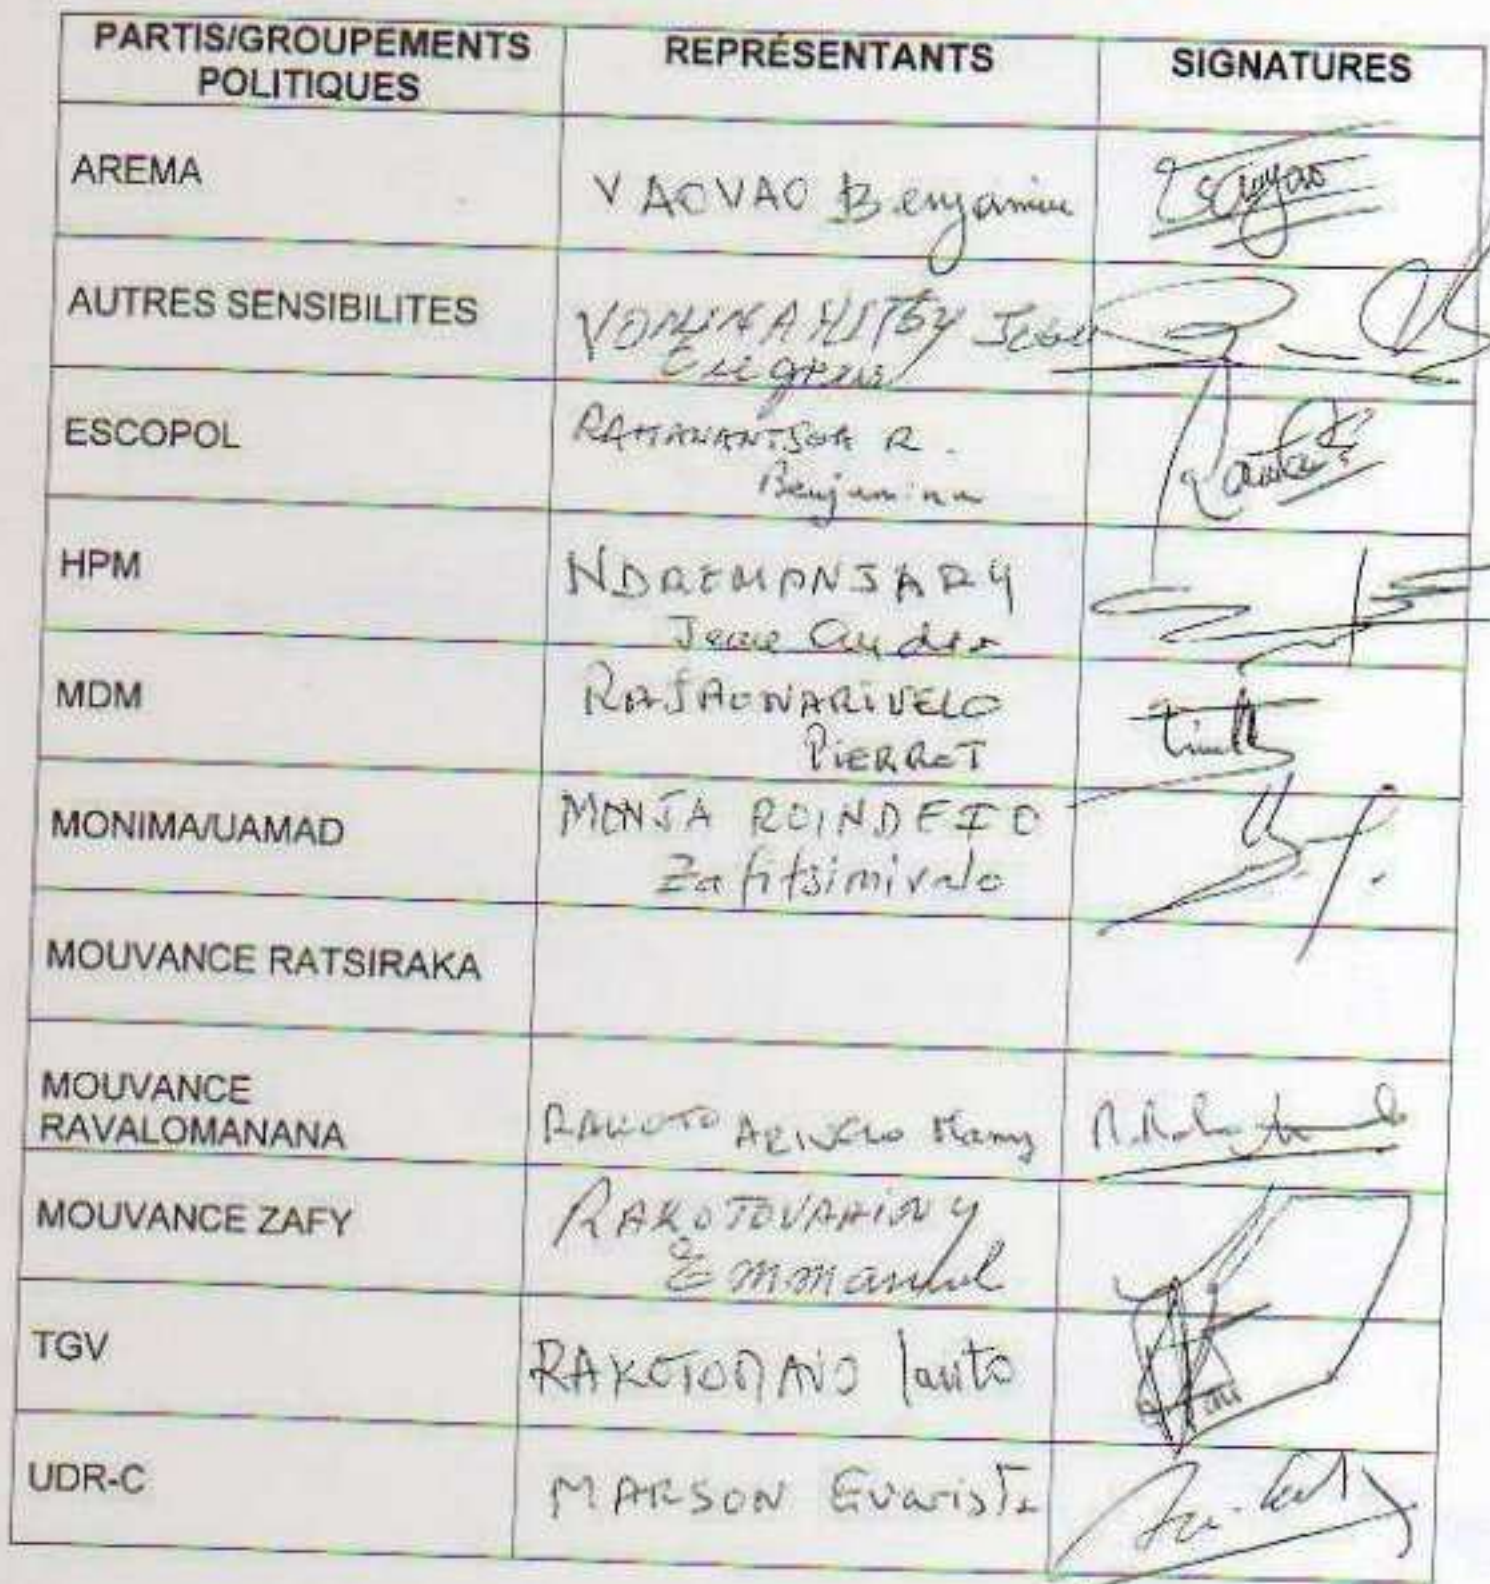 PARTIS/GROUPEMENTS POLITIQUES REPRÉSENTANTS SIGNATURES
AREMA VAOVAO Benjamin
AUTRES SENSIBILITES VONINAHITSY Jean
Eugène
ESCOPOL RAMANANTSOA R.
Benjamina
HPM NDREMANJARY
Jean André
MDM RAJAONARIVELO
PIERROT
MONIMA/UAMAD MONJA ROINDEFO
Zafitsimivalo
MOUVANCE RATSIRAKA
MOUVANCE
RAVALOMANANA RAKOTOARIVELO Mamy
MOUVANCE ZAFY RAKOTOVAHINY
Emmanuel
TGV RAKOTOMAVO lanto
UDR-C MARSON Evariste